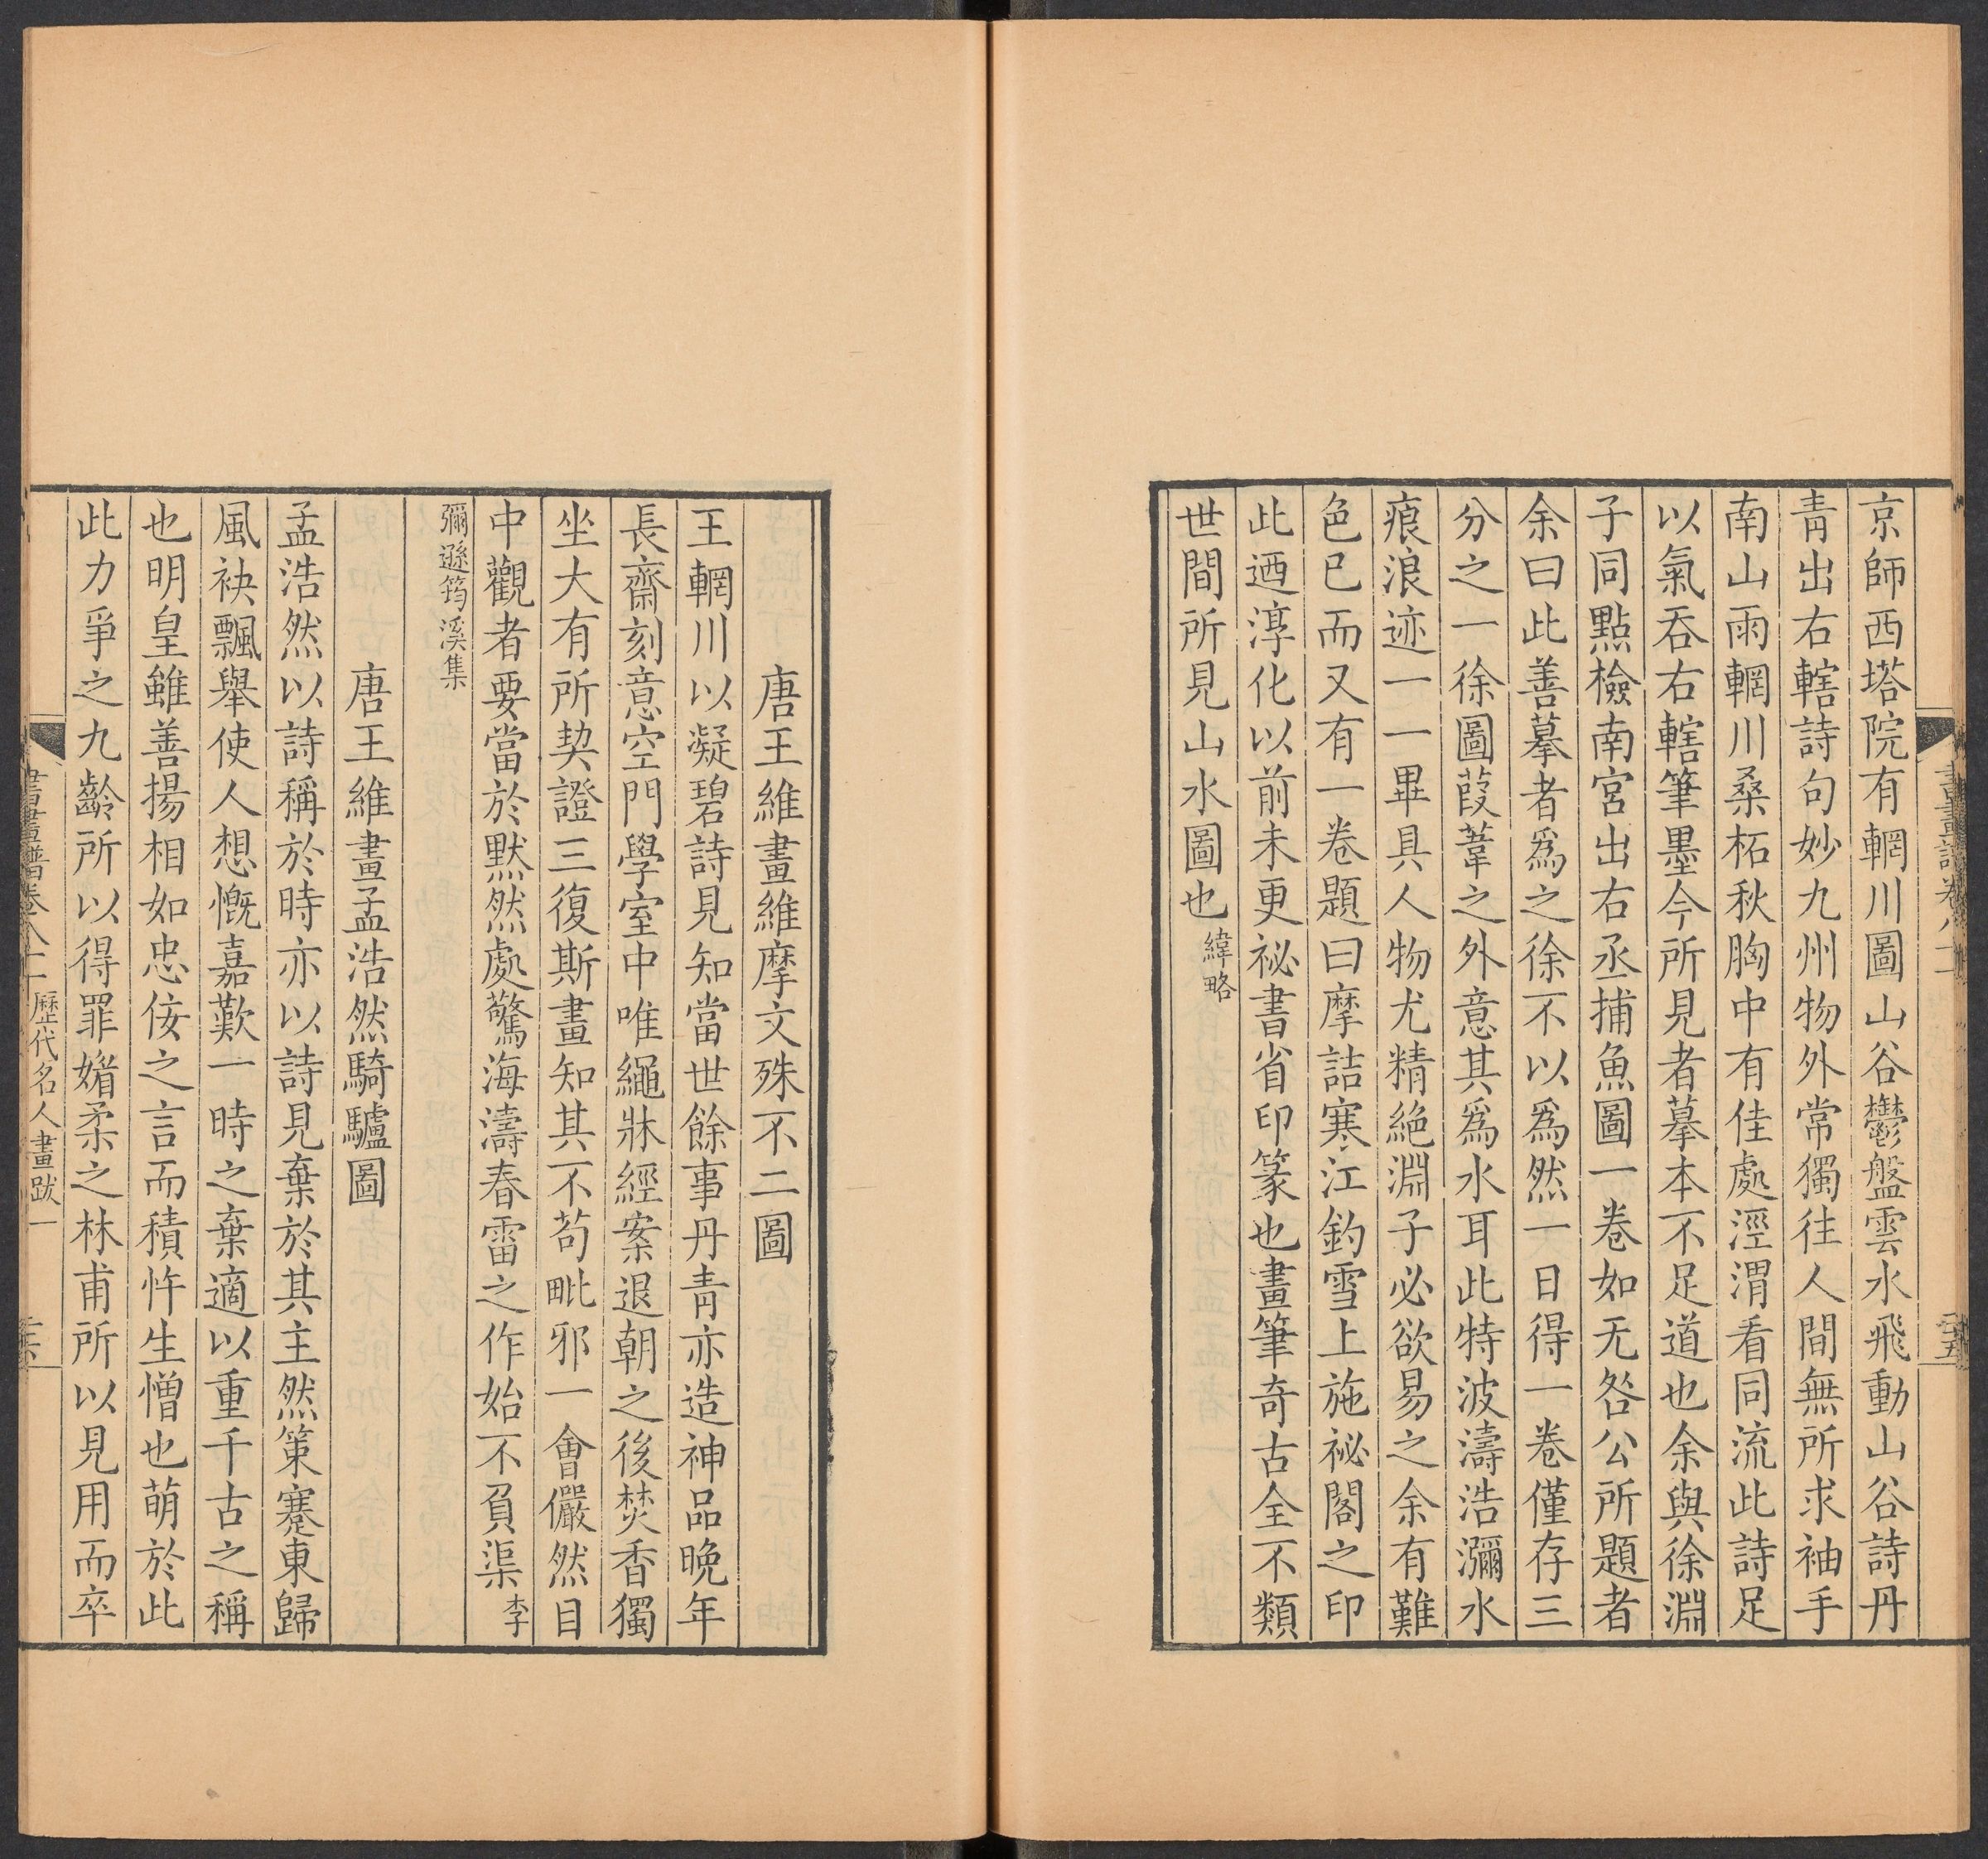 京師西塔院有輞川圖山谷鬱盤雲水飛動山谷詩丹
青出右轄詩句妙九州物外常獨往人間無所求袖手
南山雨輞川桑柘秋胸中有佳處涇渭看同流此詩足
以氣吞右轄筆墨今所見者摹本不足道也余與徐淵
子同點檢南宮出右丞捕魚圖一卷如无咎公所題者
余曰此善摹者爲之徐不以爲然一日得一卷僅存三
分之一徐圖葭葦之外意其爲水耳此特波濤浩瀰水
痕浪迹一一畢具人物尤精絶淵子必欲易之余有難
色已而又有一卷題曰摩詰寒江釣雪上施祕閣之印
此迺淳化以前未更祕書省印篆也畫筆奇古全不類
世間所見山水圖也緯略
唐王維畫維摩文殊不二圖
王輞川以凝碧詩見知當世餘事丹青亦造神品晚年
長齋刻意空門學室中唯繩牀經案退朝之後焚香獨
坐大有所契證三復斯畫知其不苟毗邪一會儼然目
中觀者要當於默然處驚海濤春雷之作始不負渠李
彌遜筠溪集
唐王維畫孟浩然騎驢圖
孟浩然以詩稱於時亦以詩見棄於其主然策蹇東歸
風袂飄舉使人想慨嘉歎一時之棄適以重千古之稱
也明皇雖善揚相如忠佞之言而積忤生憎也萌於此
此力爭之九齡所以得罪媚柔之林甫所以見用而卒
書畫譜卷八十二歷代名人畫跋一